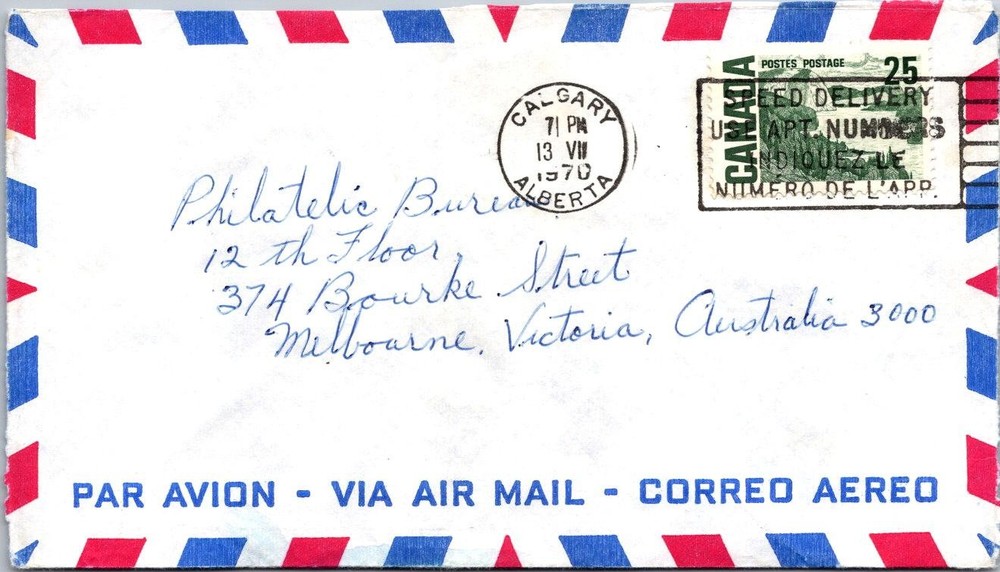 POSTES POSTAGE 25
CANADA
CALGARY
71 PM
13 VII
1970
ALBERTA
SPEED DELIVERY
USE APT. NUMBERS
INDIQUEZ LE
NUMÉRO DE L'APP.
Philatelic Bureau
12 th Floor,
374 Bourke Street
Melbourne, Victoria, Australia 3000
PAR AVION - VIA AIR MAIL - CORREO AEREO